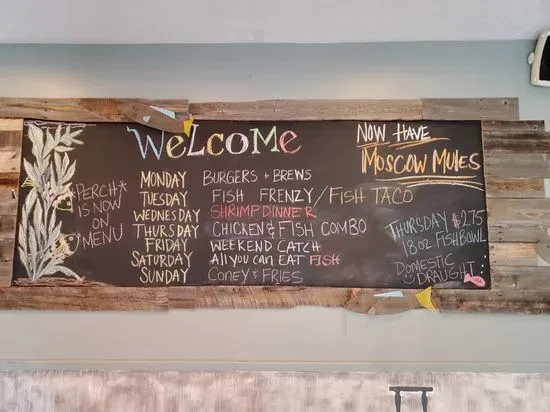 WeLcoMe
*PERCH*
IS NOW
ON
MENU
MONDAY BURGERS + BREWS
TUESDAY FISH FRENZY / FISH TACO
WEDNESDAY SHRIMP DINNER
THURSDAY CHICKEN & FISH COMBO
FRIDAY WEEKEND CATCH
SATURDAY All you can EAT FISH
SUNDAY CONEY & FRIES
NOW HAVE
MOSCOW MULES
THURSDAY $2.75
18oz FISHBOWL
DOMESTIC
DRAUGHT